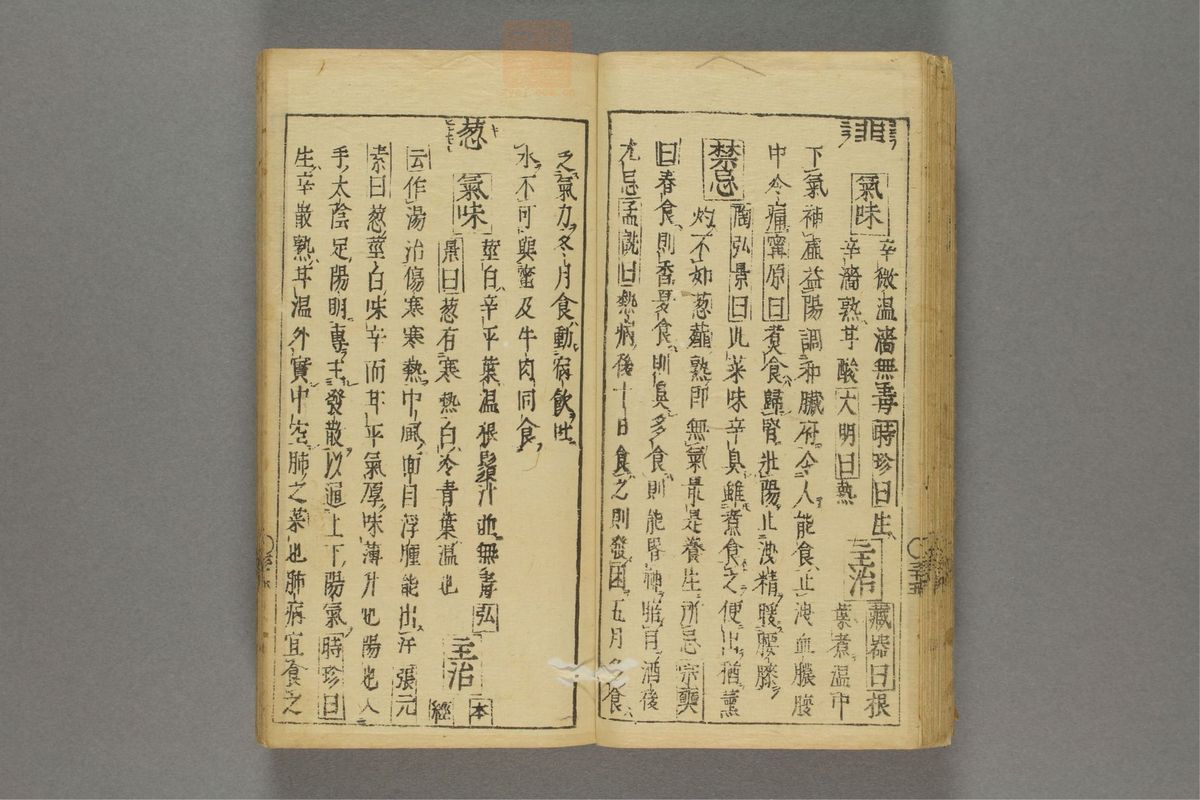 韭
氣味
辛微温濇無毒時珍曰生
辛濇熟甘酸大明曰熱
主治
藏器曰根
葉煮温中
下氣補虛益陽調和臟府令人能食止洩血膿腹
中冷痛寗原曰煑食歸腎壯陽止洩精暖腰膝
禁忌
陶弘景曰此菜味辛臭雖煮食之便出猶薰
灼不如葱薤熟即無氣最是養生所忌宗奭
曰春食則香夏食則臭多食則能昏神暗目酒後
尤忌孟詵曰熱病後十日食之則發困五月多食
乏氣力冬月食動宿飲吐
水不可與蜜及牛肉同食
葱
氣味
莖白辛平葉温根鬚汁並無毒弘
景曰葱有寒熱白冷青葉温也
主治
本
經
云作湯治傷寒寒熱中風面目浮腫能出汗張元
素曰葱莖白味辛而甘平氣厚味薄升也陽也入
手太陰足陽明專主發散以通上下陽氣時珍曰
生辛散熟甘温外實中空肺之菜也肺病宜食之